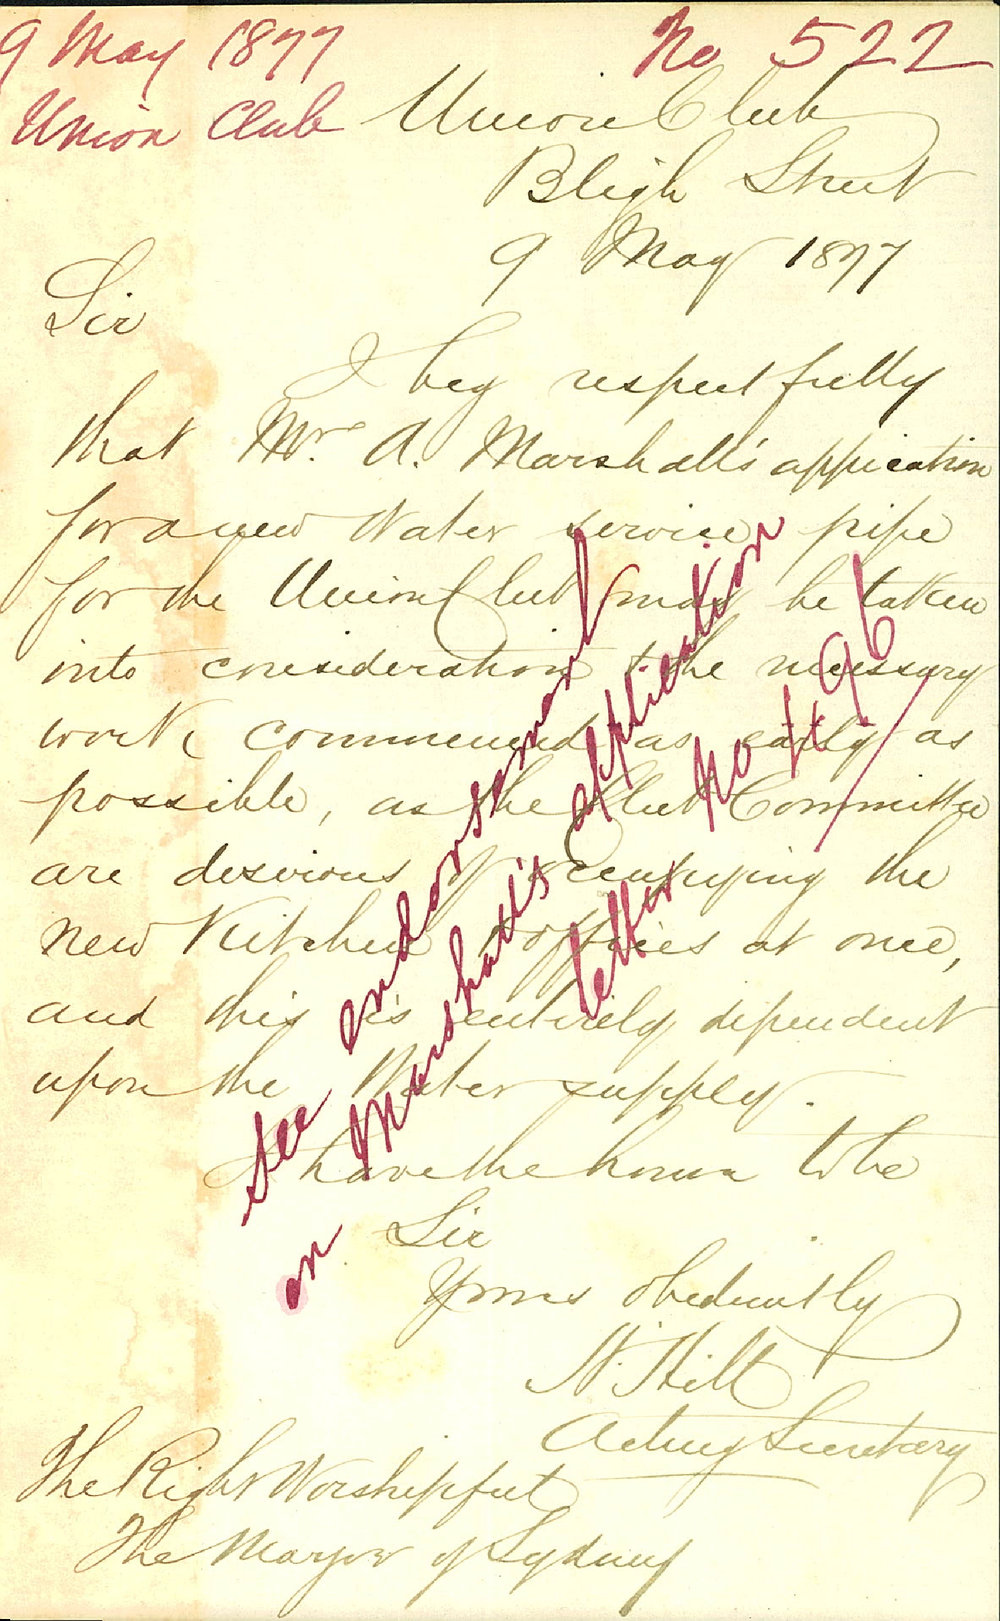 9 May 1877
No 522
Union Club
Union Club
Bligh Street
9 May 1877
Sir
I beg respectfully
that Mr. A. Marshall's appication
for a new Water service pipe
for the Union Club may be taken
into consideration & the necessary
work commenced as early as
possible, as the Club Committee
are desirous of occupying the
new Kitchen & offices at once,
and this is entirely dependent
upon the Water supply.
I have the honor to be
Sir
Yours obediently
H. Hill
Acting Secretary
The Right Worshipful
The Mayor of Sydney
See endorsement
on Marshall's application
letter No 496